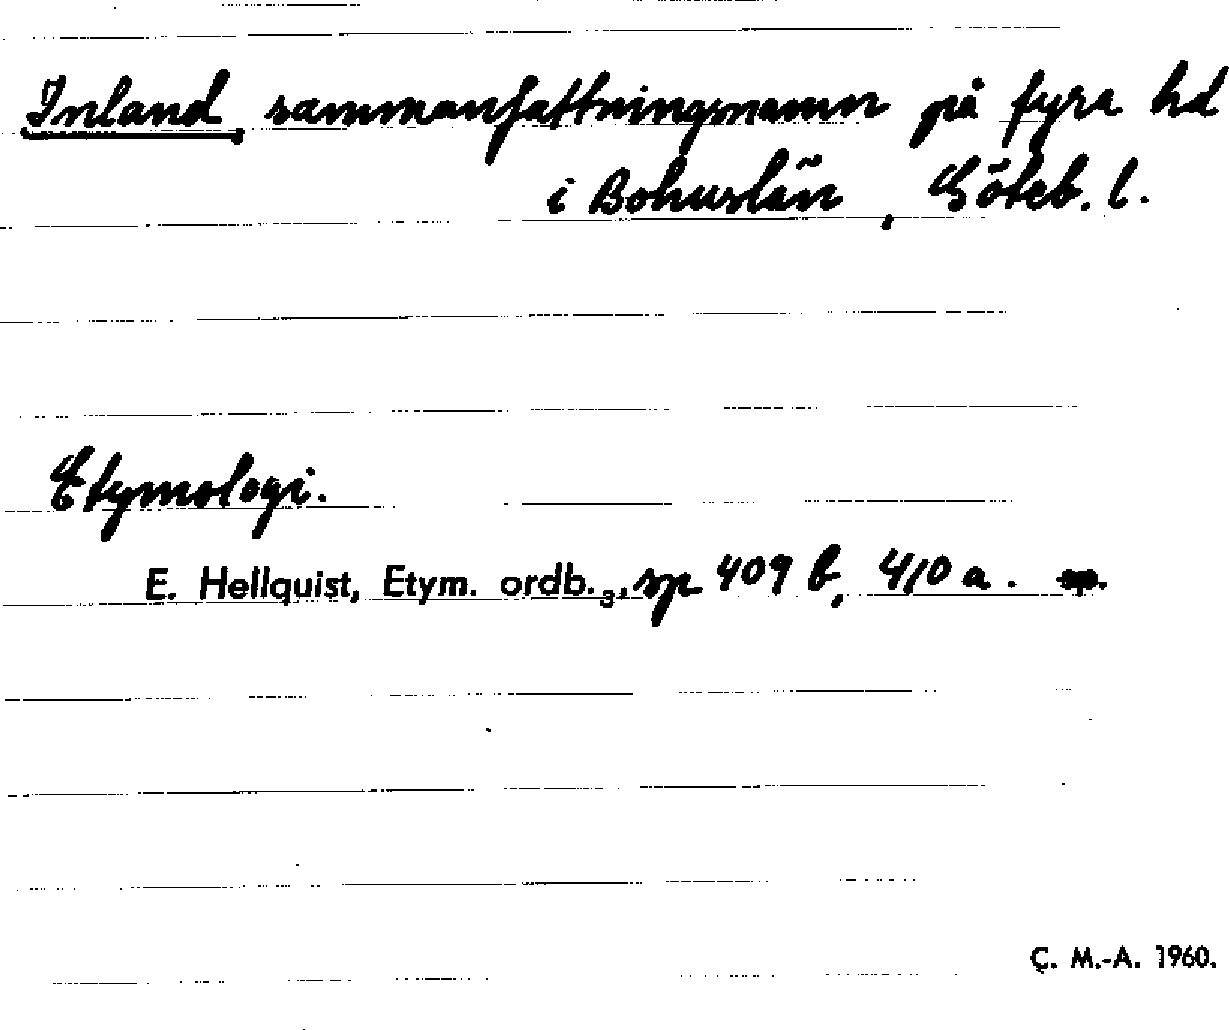 Inland sammanfattningsnamn på fyra hd
i Bohuslän, Göteb. l.
Etymologi.
E. Hellquist, Etym. ordb.₃, sp 409 b, 410 a.
C. M.-A. 1960.